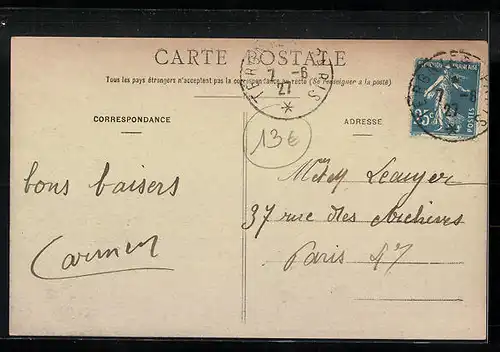 CARTE POSTALE
Tous les pays étrangers n'acceptent pas la correspondance au recto (Se renseigner à la poste)
PARIS
7 -6
27
7 -6
27
25c
POSTES
CORRESPONDANCE
ADRESSE
13€
bons baisers
Carmen
37 rue des Archives
Paris